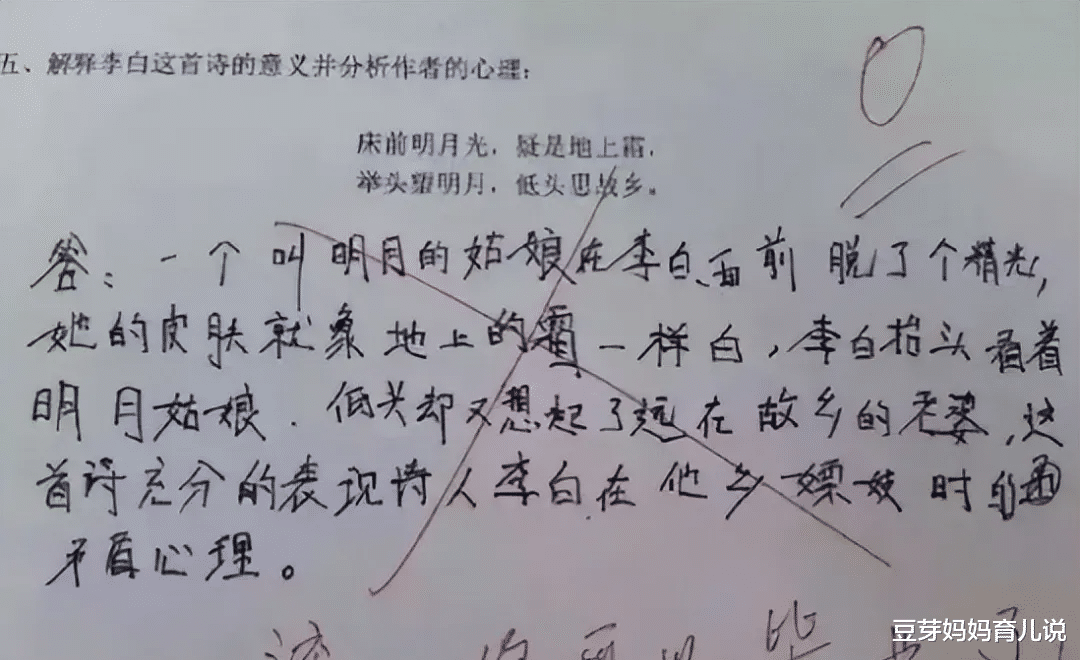 五、解释李白这首诗的意义并分析作者的心理:
床前明月光，疑是地上霜，
举头望明月，低头思故乡。
答：一个叫明月的姑娘在李白面前脱了个精光，
她的皮肤就象地上的霜一样白，李白抬头看着
明月姑娘．低头却又想起了远在故乡的老婆，这
首诗充分的表现诗人李白在他乡嫖妓时的
矛盾心理。
豆芽妈妈育儿说